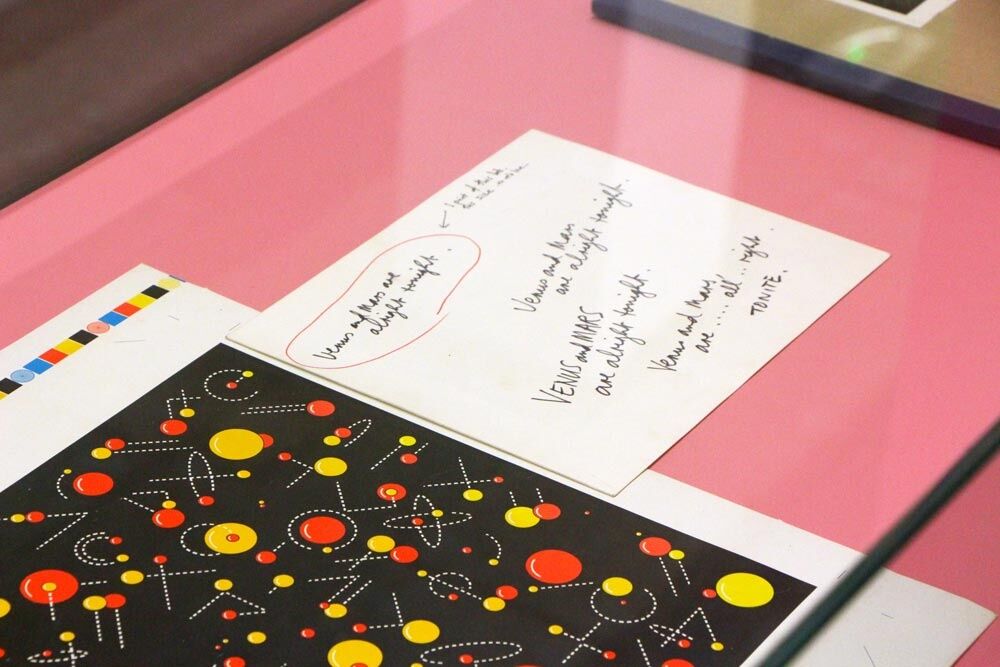 Venus and Mars are
alright tonight.
I part of this
Venus and Mars
are alright tonight.
VENUS and MARS
are alright tonight.
Venus and Mars
are ...... all .. right
TONITE.